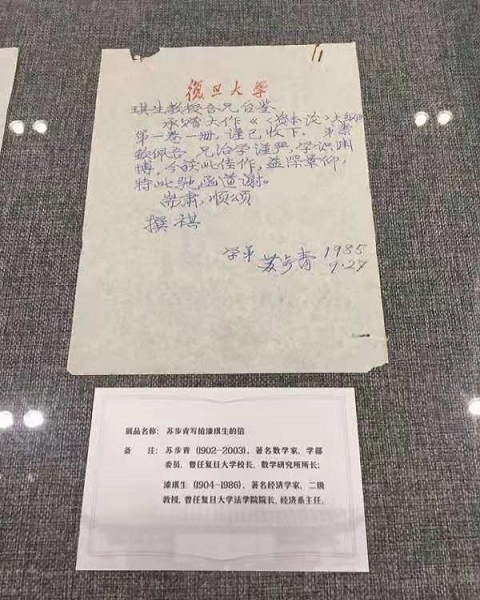 復旦大学
琪生教授吾兄台鉴
承赠大作《《资本论》大纲》
第一卷一册,谨已收下。平素
钦佩吾 兄治学谨严,学识渊
博,今获此佳作,益深景仰,
特此驰函道谢。
耑肃,顺颂
撰祺
学弟 苏步青 1985
9.27
展品名称: 苏步青写给漆琪生的信
备 注: 苏步青 (1902-2003),著名数学家、学部
委员,曾任复旦大学校长、数学研究所所长;
漆琪生 (1904-1986),著名经济学家,二级
教授,曾任复旦大学法学院院长、经济系主任。